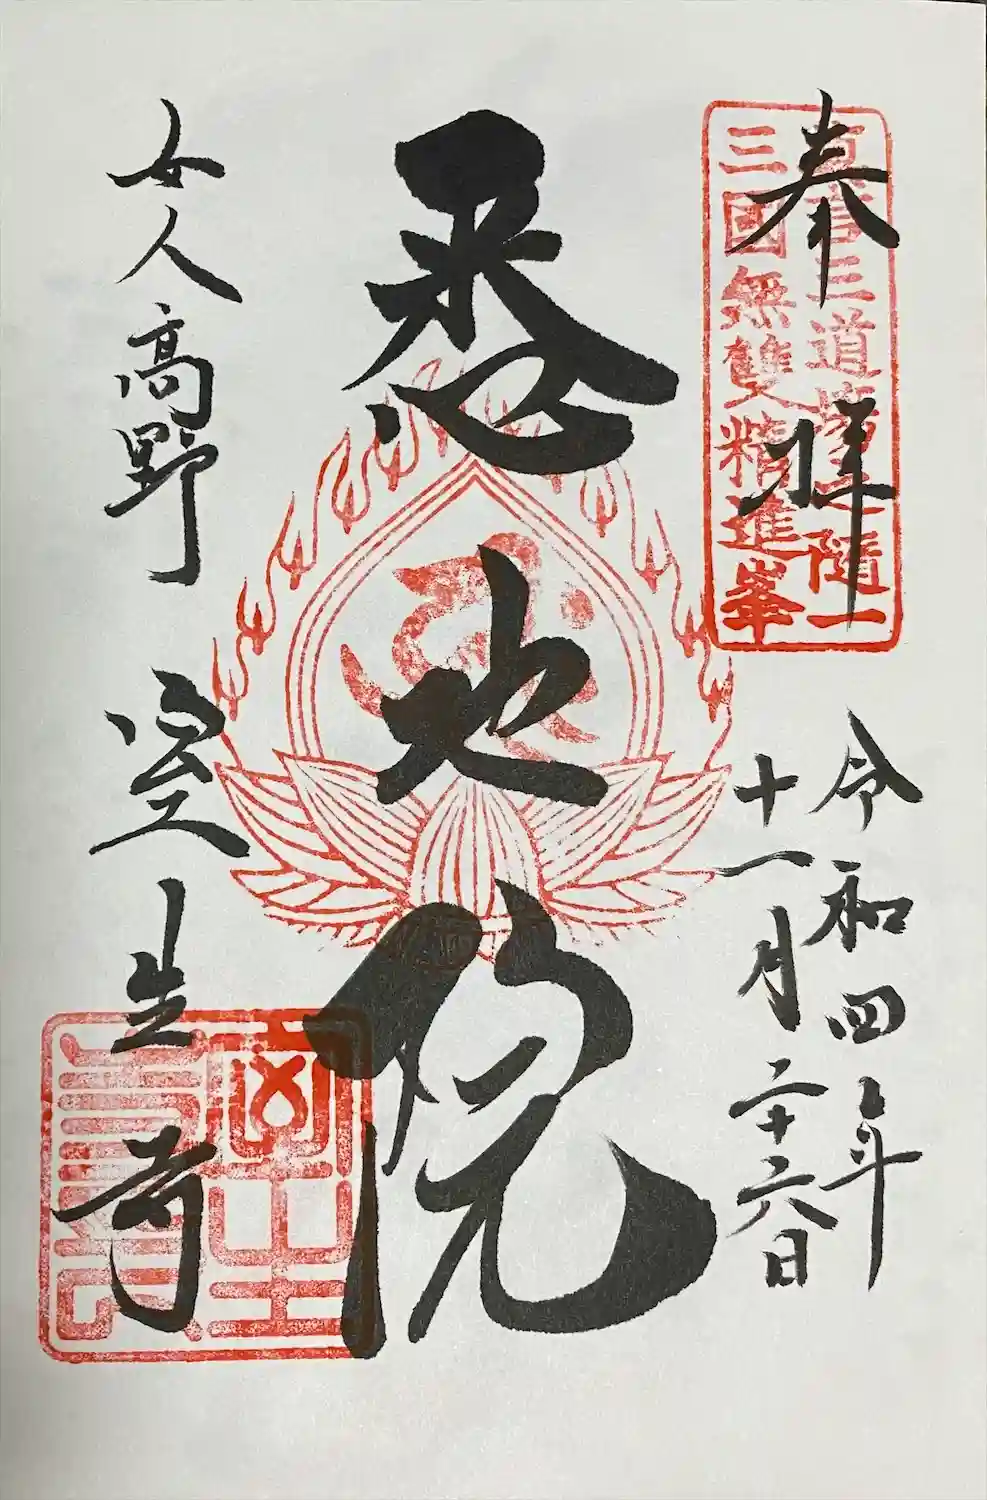 奉拝
真言三道場之随一
三國無雙精進峯
令和四年
十一月二十六日
悉地院
女人高野 室生寺